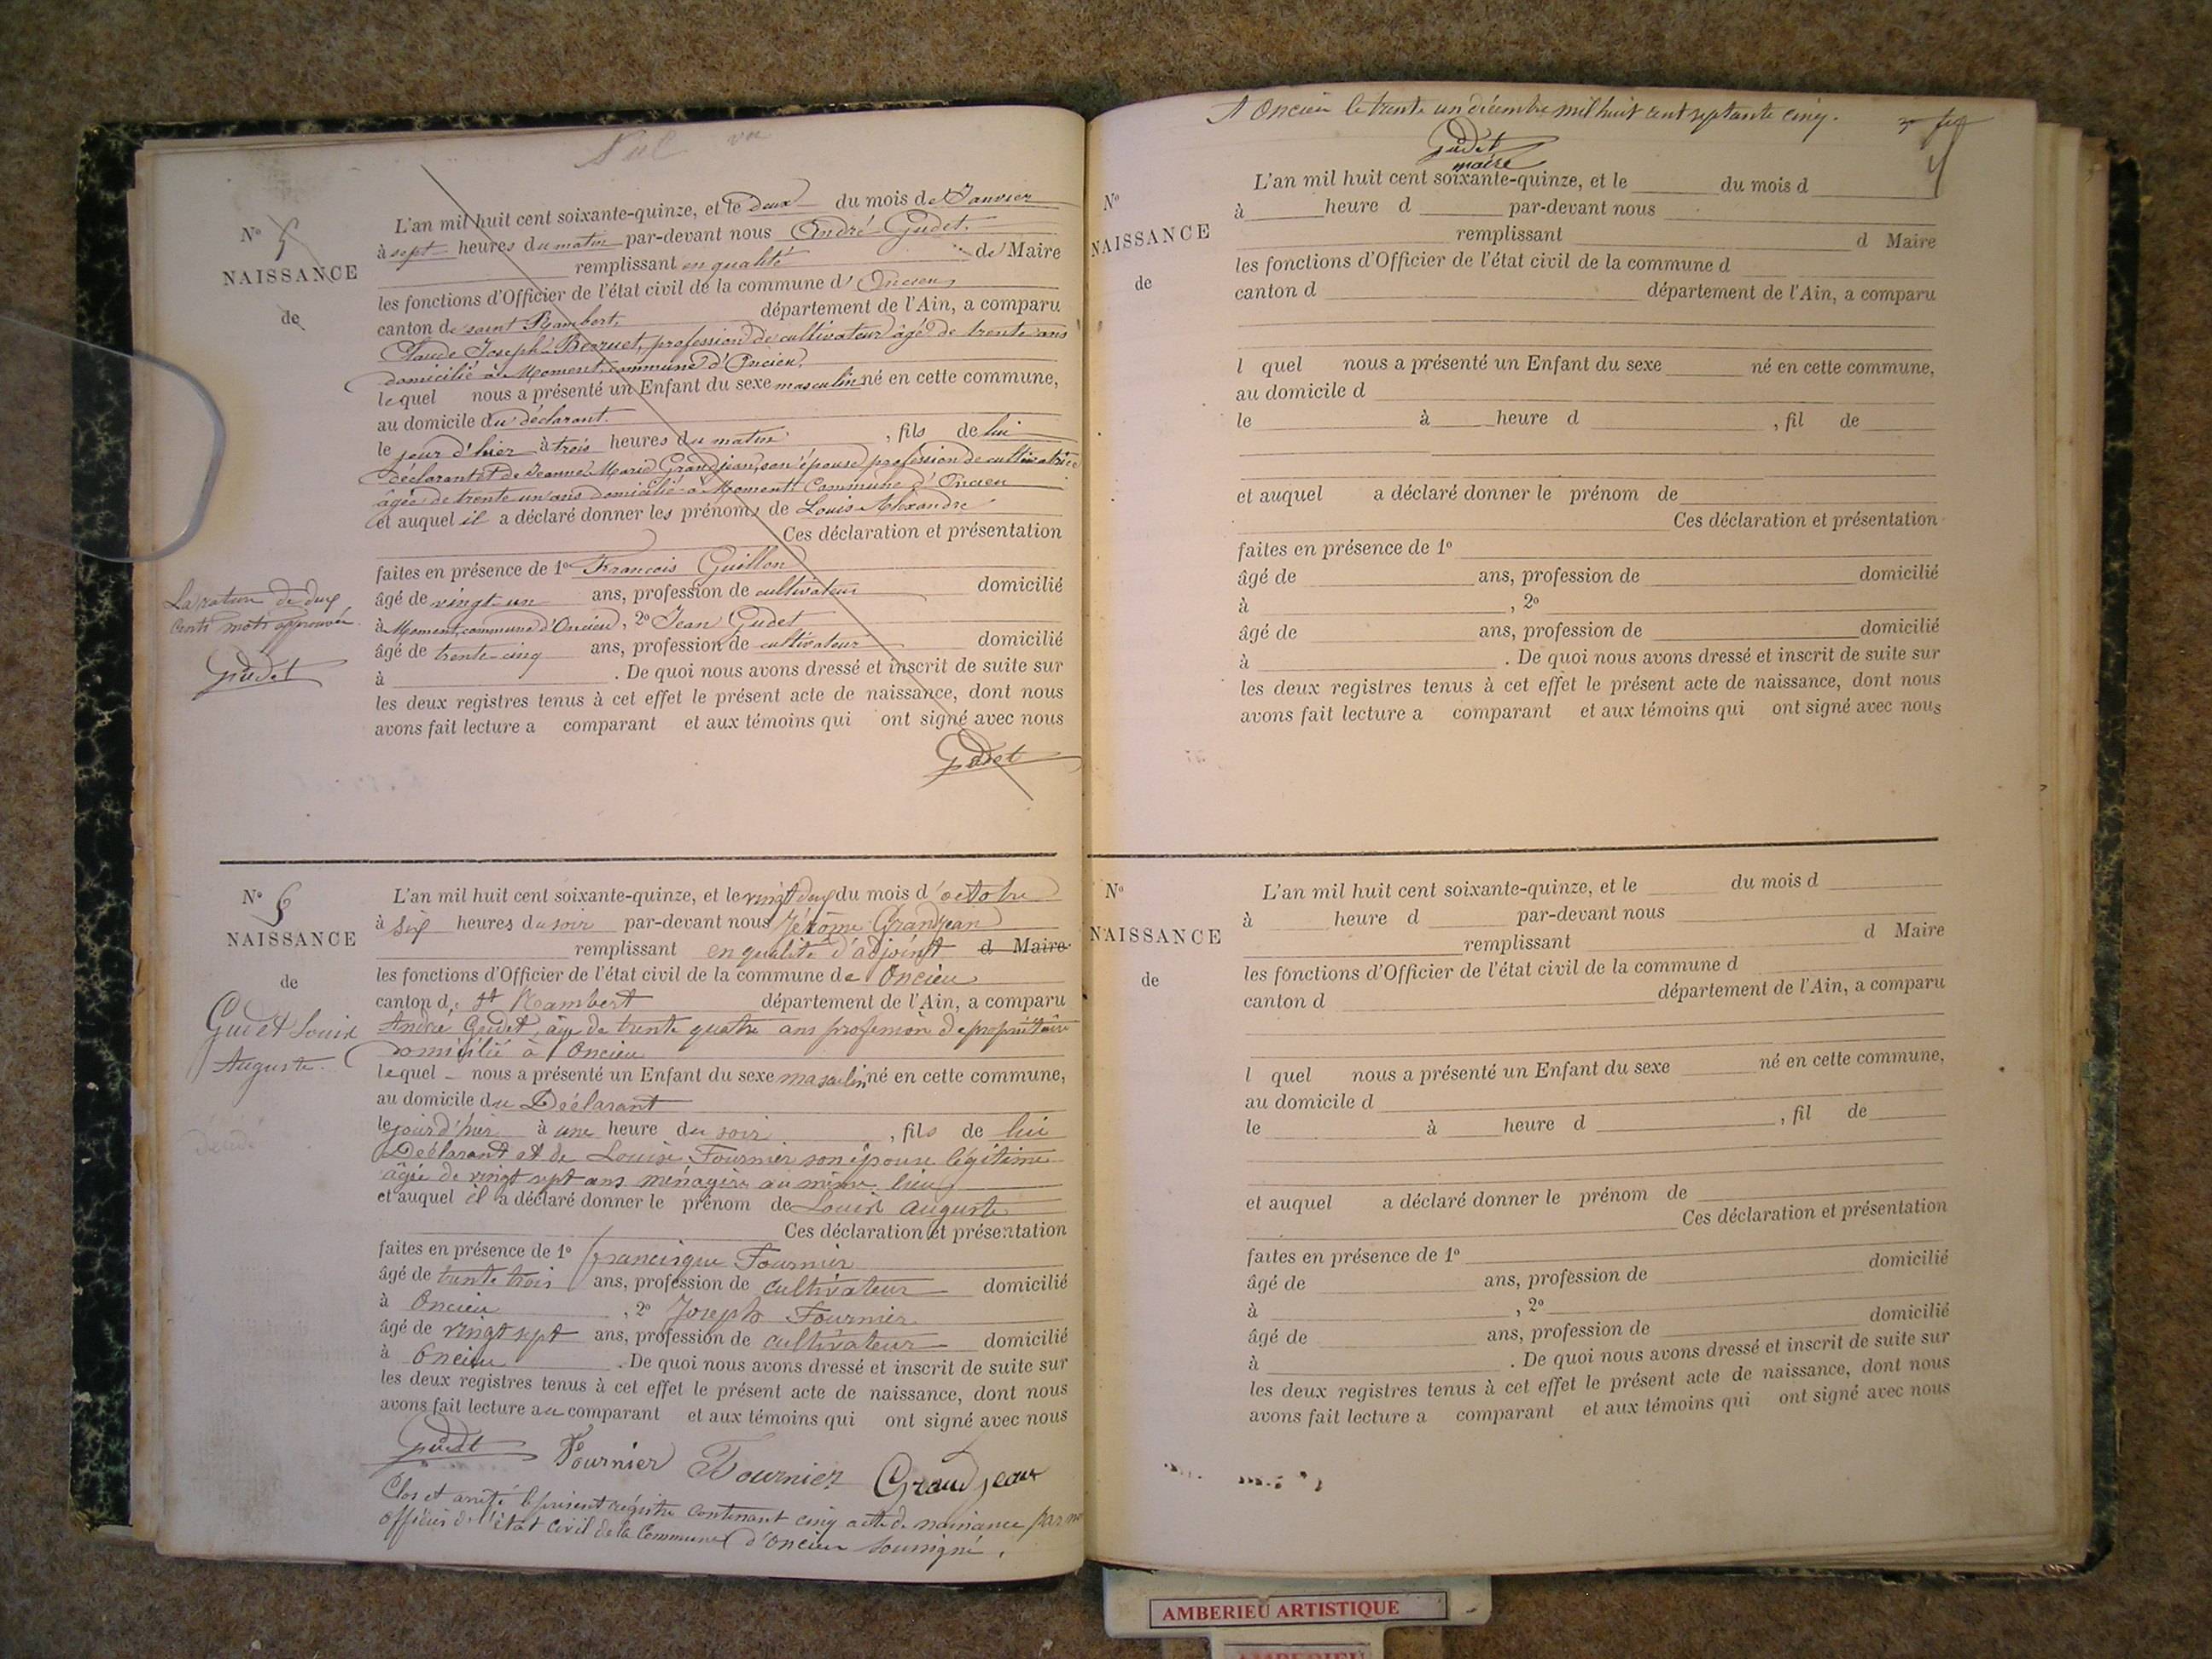 Nul
N° 5
NAISSANCE
de
L'an mil huit cent soixante-quinze, et le deux du mois de Janvier
à sept heures du matin par-devant nous André Gudet,
remplissant en qualité de Maire
les fonctions d'Officier de l'état civil de la commune d'Oncieu,
canton de saint Rambert, département de l'Ain, a comparu
Claude Joseph Berruet, profession de cultivateur âgé de trente ans
domicilié à Moment, commune d'Oncieu,
lequel nous a présenté un Enfant du sexe masculin né en cette commune,
au domicile du déclarant.
le jour d'hier à trois heures du matin, fils de lui
déclarant et de Jeanne Marie Grandjean, son épouse, profession de cultivatrice
âgée de trente un ans domicilié à Moment Commune d'Oncieu
et auquel il a déclaré donner les prénoms de Louis Alexandre
Ces déclaration et présentation
faites en présence de 1° Francois Guillon
âgé de vingt-un ans, profession de cultivateur domicilié
à Moment, commune d'Oncieu, 2° Jean Gudet
âgé de trente-cinq ans, profession de cultivateur domicilié
à . De quoi nous avons dressé et inscrit de suite sur
les deux registres tenus à cet effet le présent acte de naissance, dont nous
avons fait lecture a comparant et aux témoins qui ont signé avec nous
Gudet
La rature de deux
cents mots approuvée
Gudet
N° 5
NAISSANCE
de
Gudet Louis
Auguste.
L'an mil huit cent soixante-quinze, et le vingt deux du mois d'octobre
à six heures du soir par-devant nous Jérôme Grandjean
remplissant en qualité d'adjoint d Maire
les fonctions d'Officier de l'état civil de la commune de Oncieu
canton de St Rambert département de l'Ain, a comparu
André Gudet, âgé de trente quatre ans profession de propriétaire
domicilié à Oncieu
lequel nous a présenté un Enfant du sexe masculin né en cette commune,
au domicile du Déclarant
le jour d'hier à une heure du soir, fils de lui
Déclarant et de Louise Fournier son épouse légitime
âgée de vingt sept ans ménagère au même lieu
et auquel il a déclaré donner le prénom de Louis Auguste
Ces déclaration et présentation
faites en présence de 1° francisque Fournier
âgé de trente trois ans, profession de cultivateur domicilié
à Oncieu, 2° Joseph Fournier
âgé de vingt sept ans, profession de cultivateur domicilié
à Oncieu. De quoi nous avons dressé et inscrit de suite sur
les deux registres tenus à cet effet le présent acte de naissance, dont nous
avons fait lecture au comparant et aux témoins qui ont signé avec nous
Gudet Fournier Fournier Grandjean
Clos et arrêté le présent régistre contenant cinq acte de naissance par
officier de l'état civil de la Commune d'Oncieu soussigné.
A Oncieu le trente un décembre mil huit cent septante cinq.
Gudet
maire
N°
NAISSANCE
de
L'an mil huit cent soixante-quinze, et le du mois d
à heure d par-devant nous
remplissant d Maire
les fonctions d'Officier de l'état civil de la commune d
canton d département de l'Ain, a comparu
l quel nous a présenté un Enfant du sexe né en cette commune,
au domicile d
le à heure d , fil de
et auquel a déclaré donner le prénom de
Ces déclaration et présentation
faites en présence de 1°
âgé de ans, profession de domicilié
à , 2°
âgé de ans, profession de domicilié
à . De quoi nous avons dressé et inscrit de suite sur
les deux registres tenus à cet effet le présent acte de naissance, dont nous
avons fait lecture a comparant et aux témoins qui ont signé avec nous
N°
NAISSANCE
de
L'an mil huit cent soixante-quinze, et le du mois d
à heure d par-devant nous
remplissant d Maire
les fonctions d'Officier de l'état civil de la commune d
canton d département de l'Ain, a comparu
l quel nous a présenté un Enfant du sexe né en cette commune,
au domicile d
le à heure d , fil de
et auquel a déclaré donner le prénom de
Ces déclaration et présentation
faites en présence de 1°
âgé de ans, profession de domicilié
à , 2°
âgé de ans, profession de domicilié
à . De quoi nous avons dressé et inscrit de suite sur
les deux registres tenus à cet effet le présent acte de naissance, dont nous
avons fait lecture a comparant et aux témoins qui ont signé avec nous
AMBERIEU ARTISTIQUE
AMBERIEU